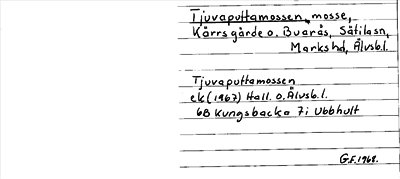 Tjuvaputtamossen, mosse,
Kärrsgärde o. Buarås, Sätilasn,
Markshd, Älvsb.l.
Tjuvaputtamossen
ek (1967) Hall. o. Älvsb.l.
6B Kungsbacka 7i Ubbhult
G.F. 1968.